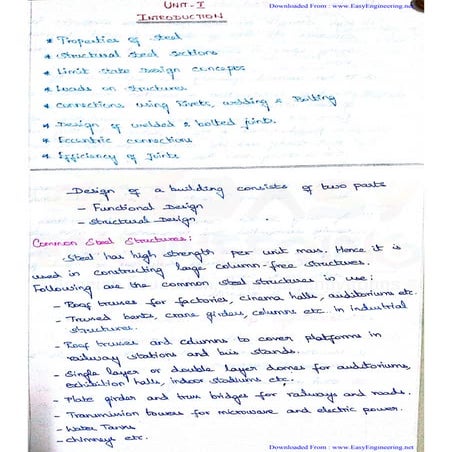 Downloaded From : www.EasyEngineering.net
UNIT-I
INTRODUCTION
* Properties of Steel
* Structural Steel Sections
* Limit State Design Concepts
* Loads on Structures
* Connections using Rivets, welding & Bolting
* Design of welded & bolted joints
* Eccentric connections
* Efficiency of Joints
Design of a building consists of two parts
- Functional Design
- Structural Design
Common Steel Structures:
Steel has high strength per unit mass. Hence it is
used in constructing large column-free structures.
Following are the common steel structures in use:
- Roof trusses for factories, cinema halls, auditoriums etc.
- Trussed bents, crane girders, columns etc. in industrial
structures.
- Roof trusses and columns to cover platforms in
railway stations and bus stands.
- Single layer or double layer domes for auditoriums,
exhibition halls, indoor stadiums etc.
- Plate girder and truss bridges for railways and roads.
- Transmission towers for microwave and electric power.
- Water Tanks
- chimneys etc.
Downloaded From : www.EasyEngineering.net